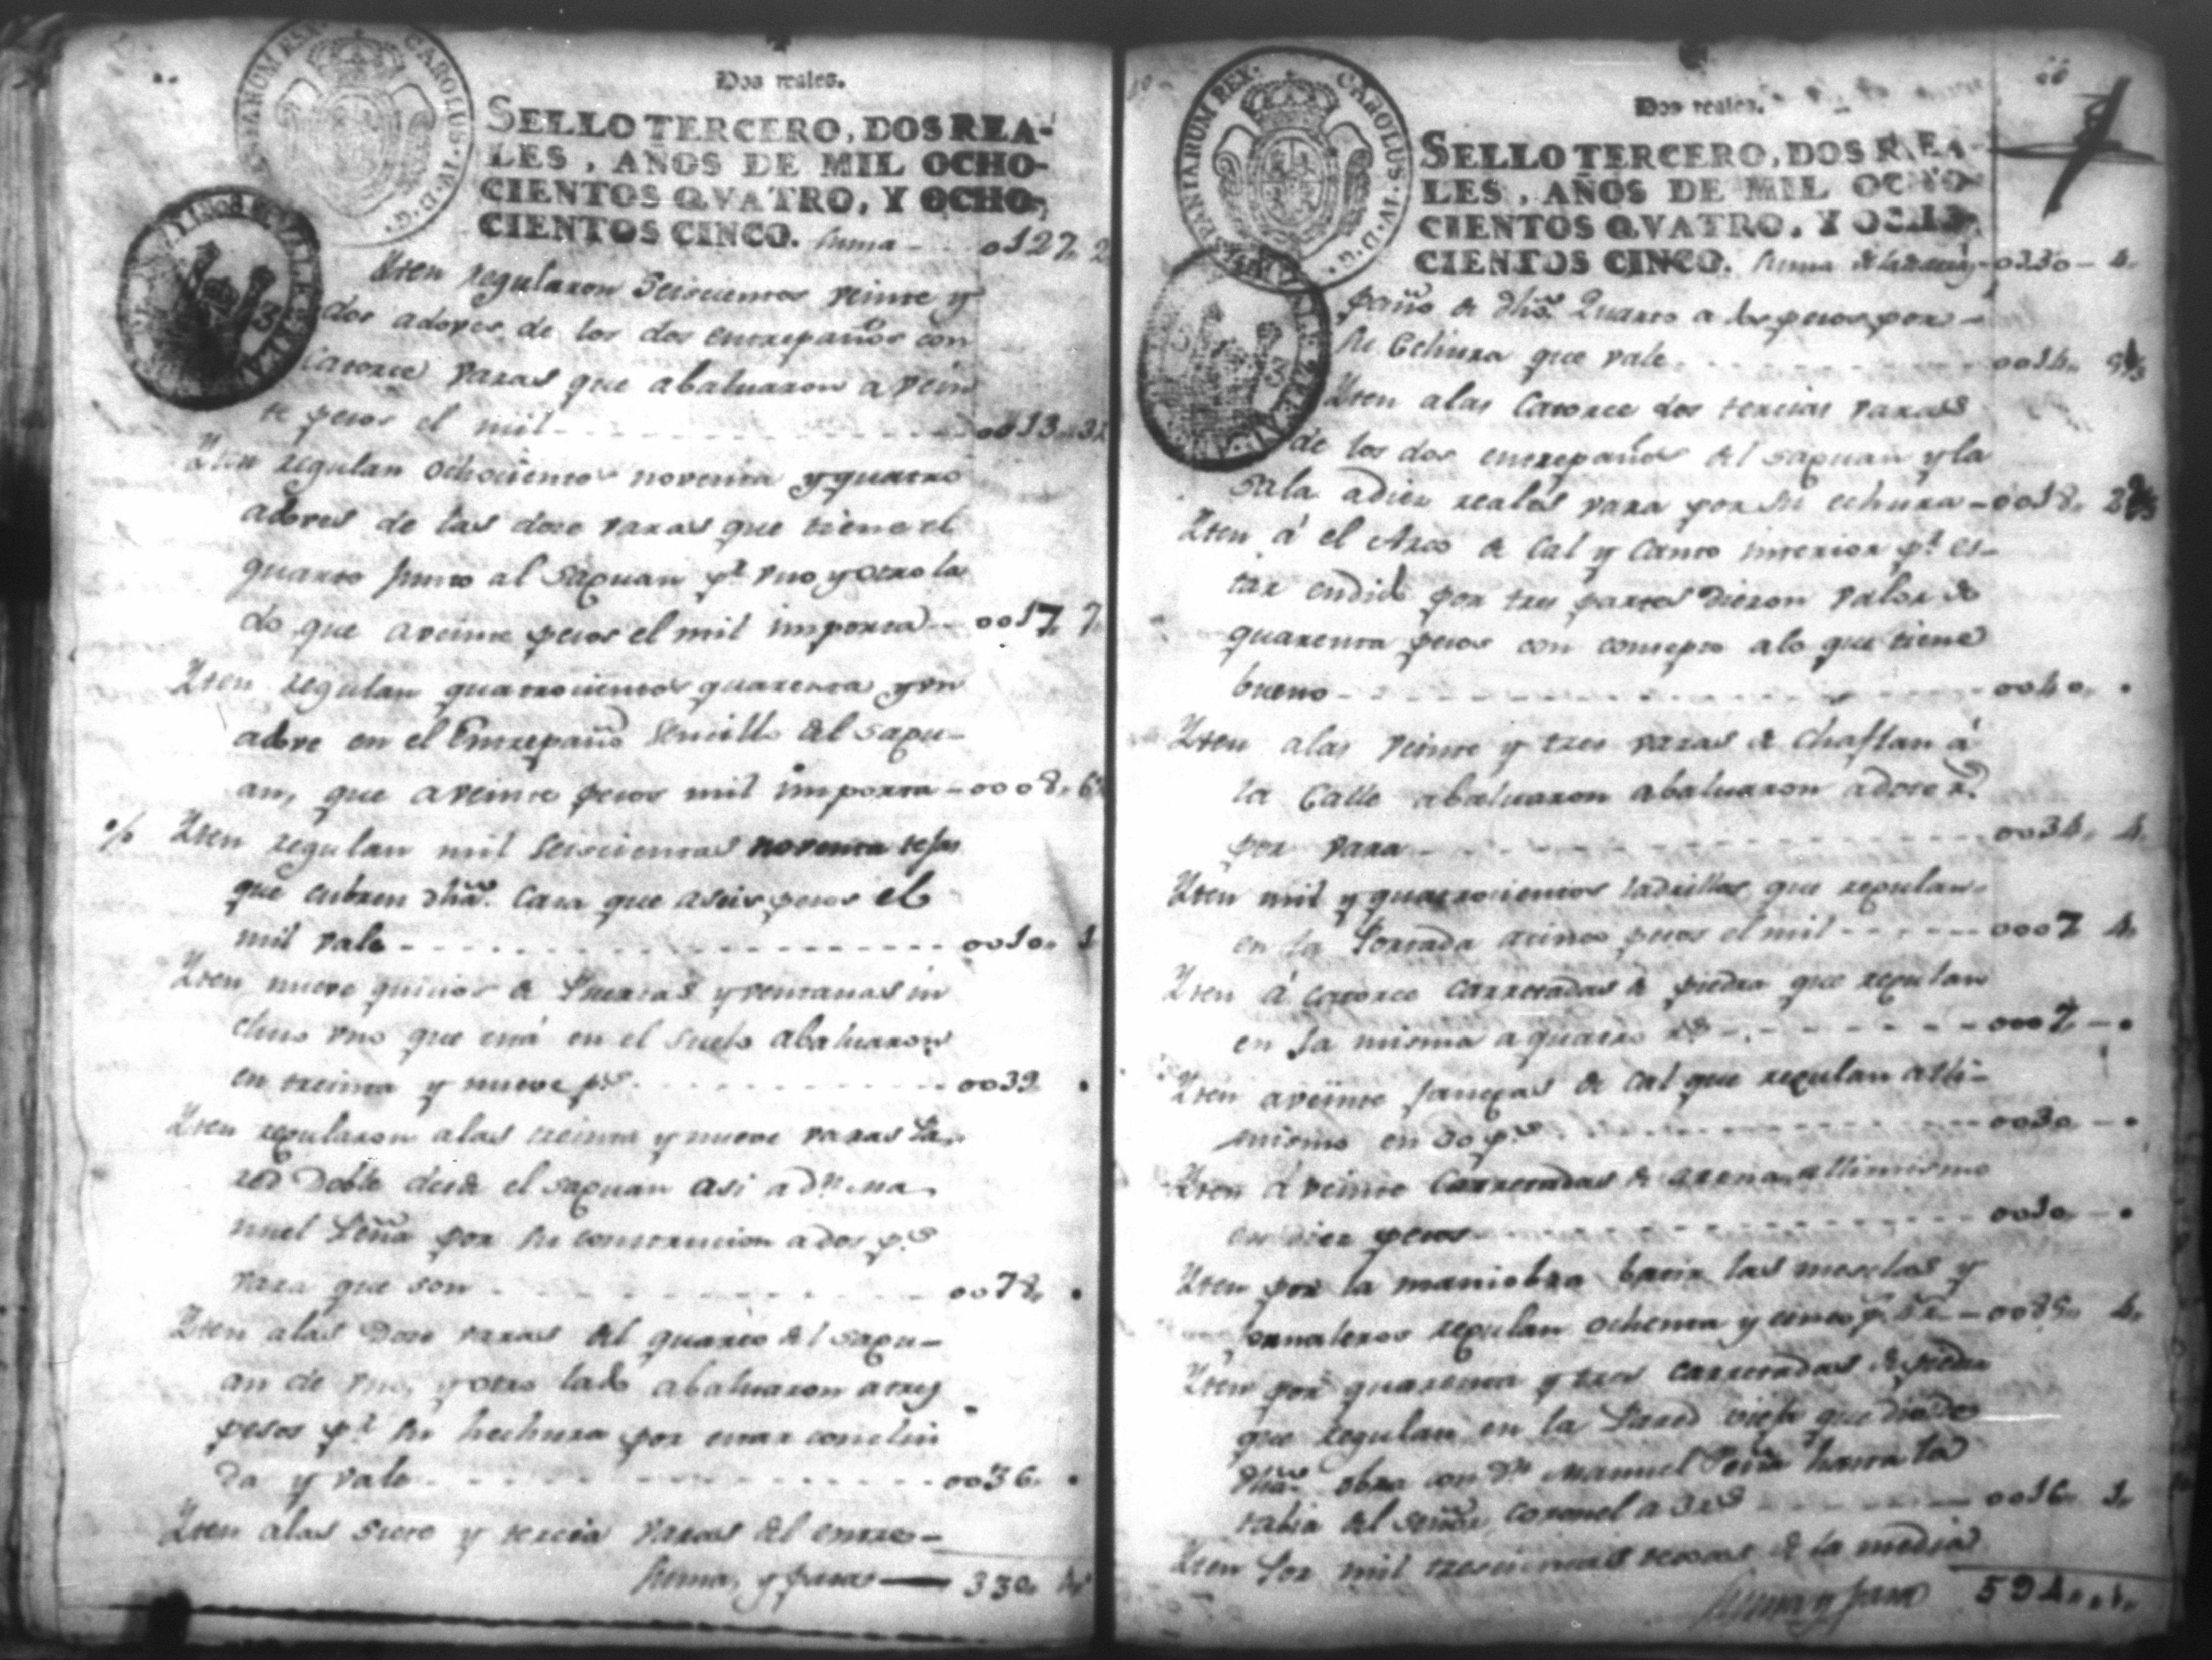 Dos reales.
SELLO TERCERO, DOS REA-
LES, AÑOS DE MIL OCHO-
CIENTOS QVATRO, Y OCHO-
CIENTOS CINCO. Suma - 0127, 2
HISPANIARUM REX
CAROLUS · IV · D · G ·
Yten regularon Seiscientos veinte y
dos adoves de los dos entrepaños con
Catorce varas que abaluaron a vein
te pesos el mil - - - 0013, 3
Yten regulan ochocientos noventa y quatro
adoves de las doce varas que tiene el
quarto junto al sapuan pr. vno y otro la
do que a veinte pesos el mil importa - 0017, 7
Yten regulan quatrocientos quarenta y vn
adove en el Entrepaño sencillo del sapu-
an, que a veinte pesos mil importa - 0008, 6
Yten regulan mil seiscientas noventa tejas
que cubren dha. Casa que a seis pesos el
mil vale - - - 0010, 1
Yten nueve quicios de Puertas y ventanas in
cluso vno que está en el suelo abaluaron
en treinta y nueve ps. - - - 0039
Yten regularon a las treinta y nueve varas Pa-
red Doble desde el sapuan asi a Dn. Ma-
nuel Peña por su construcion a dos ps.
vara que son - - - 0078,
Yten a las Doce varas del quarto del sapu-
an de vno, y otro lado abaluaron a tres
pesos pr. su hechura por estar conclui
da y vale - - - 0036,
Yten a las siete y tercia varas del entre-
Suma, y pasa — 330, 4
Dos reales.
SELLO TERCERO, DOS REA-
LES, AÑOS DE MIL OCHO
CIENTOS QVATRO, Y OCHO
CIENTOS CINCO. Suma de la 0330 - 4
HISPANIARUM REX
CAROLUS · IV · D · G ·
paño de dho. Quarto a dos pesos por
su echura que vale - - - 0014,
Yten a las Catorce dos tercias varas
de los dos entrepaños del sapuan y la
sala a diez reales vara por su echura - 0018, 2
Yten á el Arco de Cal y Canto interior pr. es-
tar endido por tres partes Dieron valor de
quarenta pesos con consepto a lo que tiene
bueno - - - 0040,
Yten a las veinte y tres varas de Chaflan á
la Calle abaluaron abaluaron a doce rs.
por vara - - - 0034, 4
Yten mil y quatrocientos ladrillos que regulan
en la Portada a cinco pesos el mil - - - 0007 4
Yten á catorce carretadas de piedra que regulan
en la misma a quatro rs. - - - 0007 -
Yten a veinte fanegas de Cal que regulan alli-
mismo en 30 ps. - - - 0030 -
Yten á veinte Carretadas de arena allimismo
en diez pesos - - - 0010 -
Yten por la maniobra bacir las mesclas y
jornaleros regulan ochenta y cinco ps. 4 rs. - 0085, 4
Yten por quarenta y tres carretadas de piedra
que regulan en la Pared vieja que divide
dha. obra con Dn. Manuel Peña hasta la
tabia del señor coronel a 3 rs. - - - 0016, 1
Yten Por mil trescientas de la media
Suma y pasa 594, 4